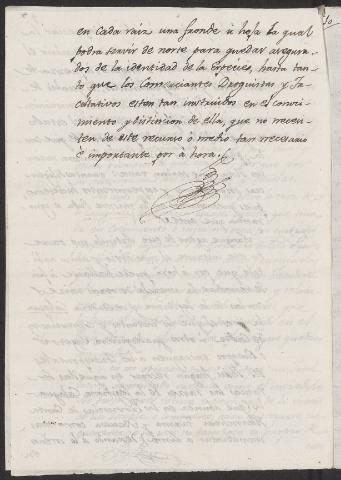 en cada raiz una fronde ù hoja la qual
podra servir de norte para quedar asegura-
dos de la identidad de la Especie, hasta tan-
tò que los Comerciantes Droguistas y Fa-
cultativos esten tan instruidos en el conoci-
miento y distincion de ella, que no necesi-
ten de este recurso ò medio tan necesario
è importante por à hora.